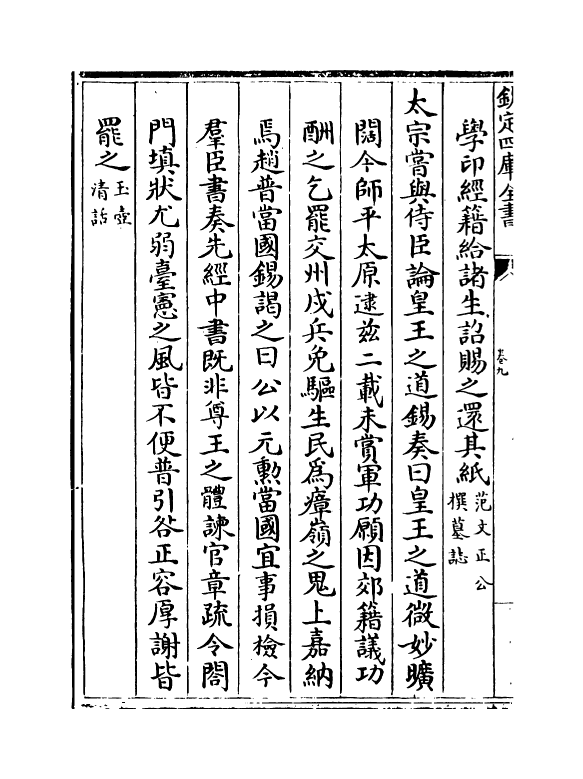 欽定四庫全書
卷九
學印經籍給諸生詔賜之還其紙范文正公撰墓誌
太宗嘗與侍臣論皇王之道錫奏曰皇王之道微妙曠
闊今師平太原逮兹二載未賞軍功願因郊籍議功
酬之乞罷交州戍兵免驅生民為瘴嶺之鬼上嘉納
焉趙普當國錫謁之曰公以元勲當國宜事損檢今
羣臣書奏先經中書既非尊王之體諫官章疏令閤
門填狀尤弱臺憲之風皆不便普引咎正容厚謝皆
罷之玉壺清話